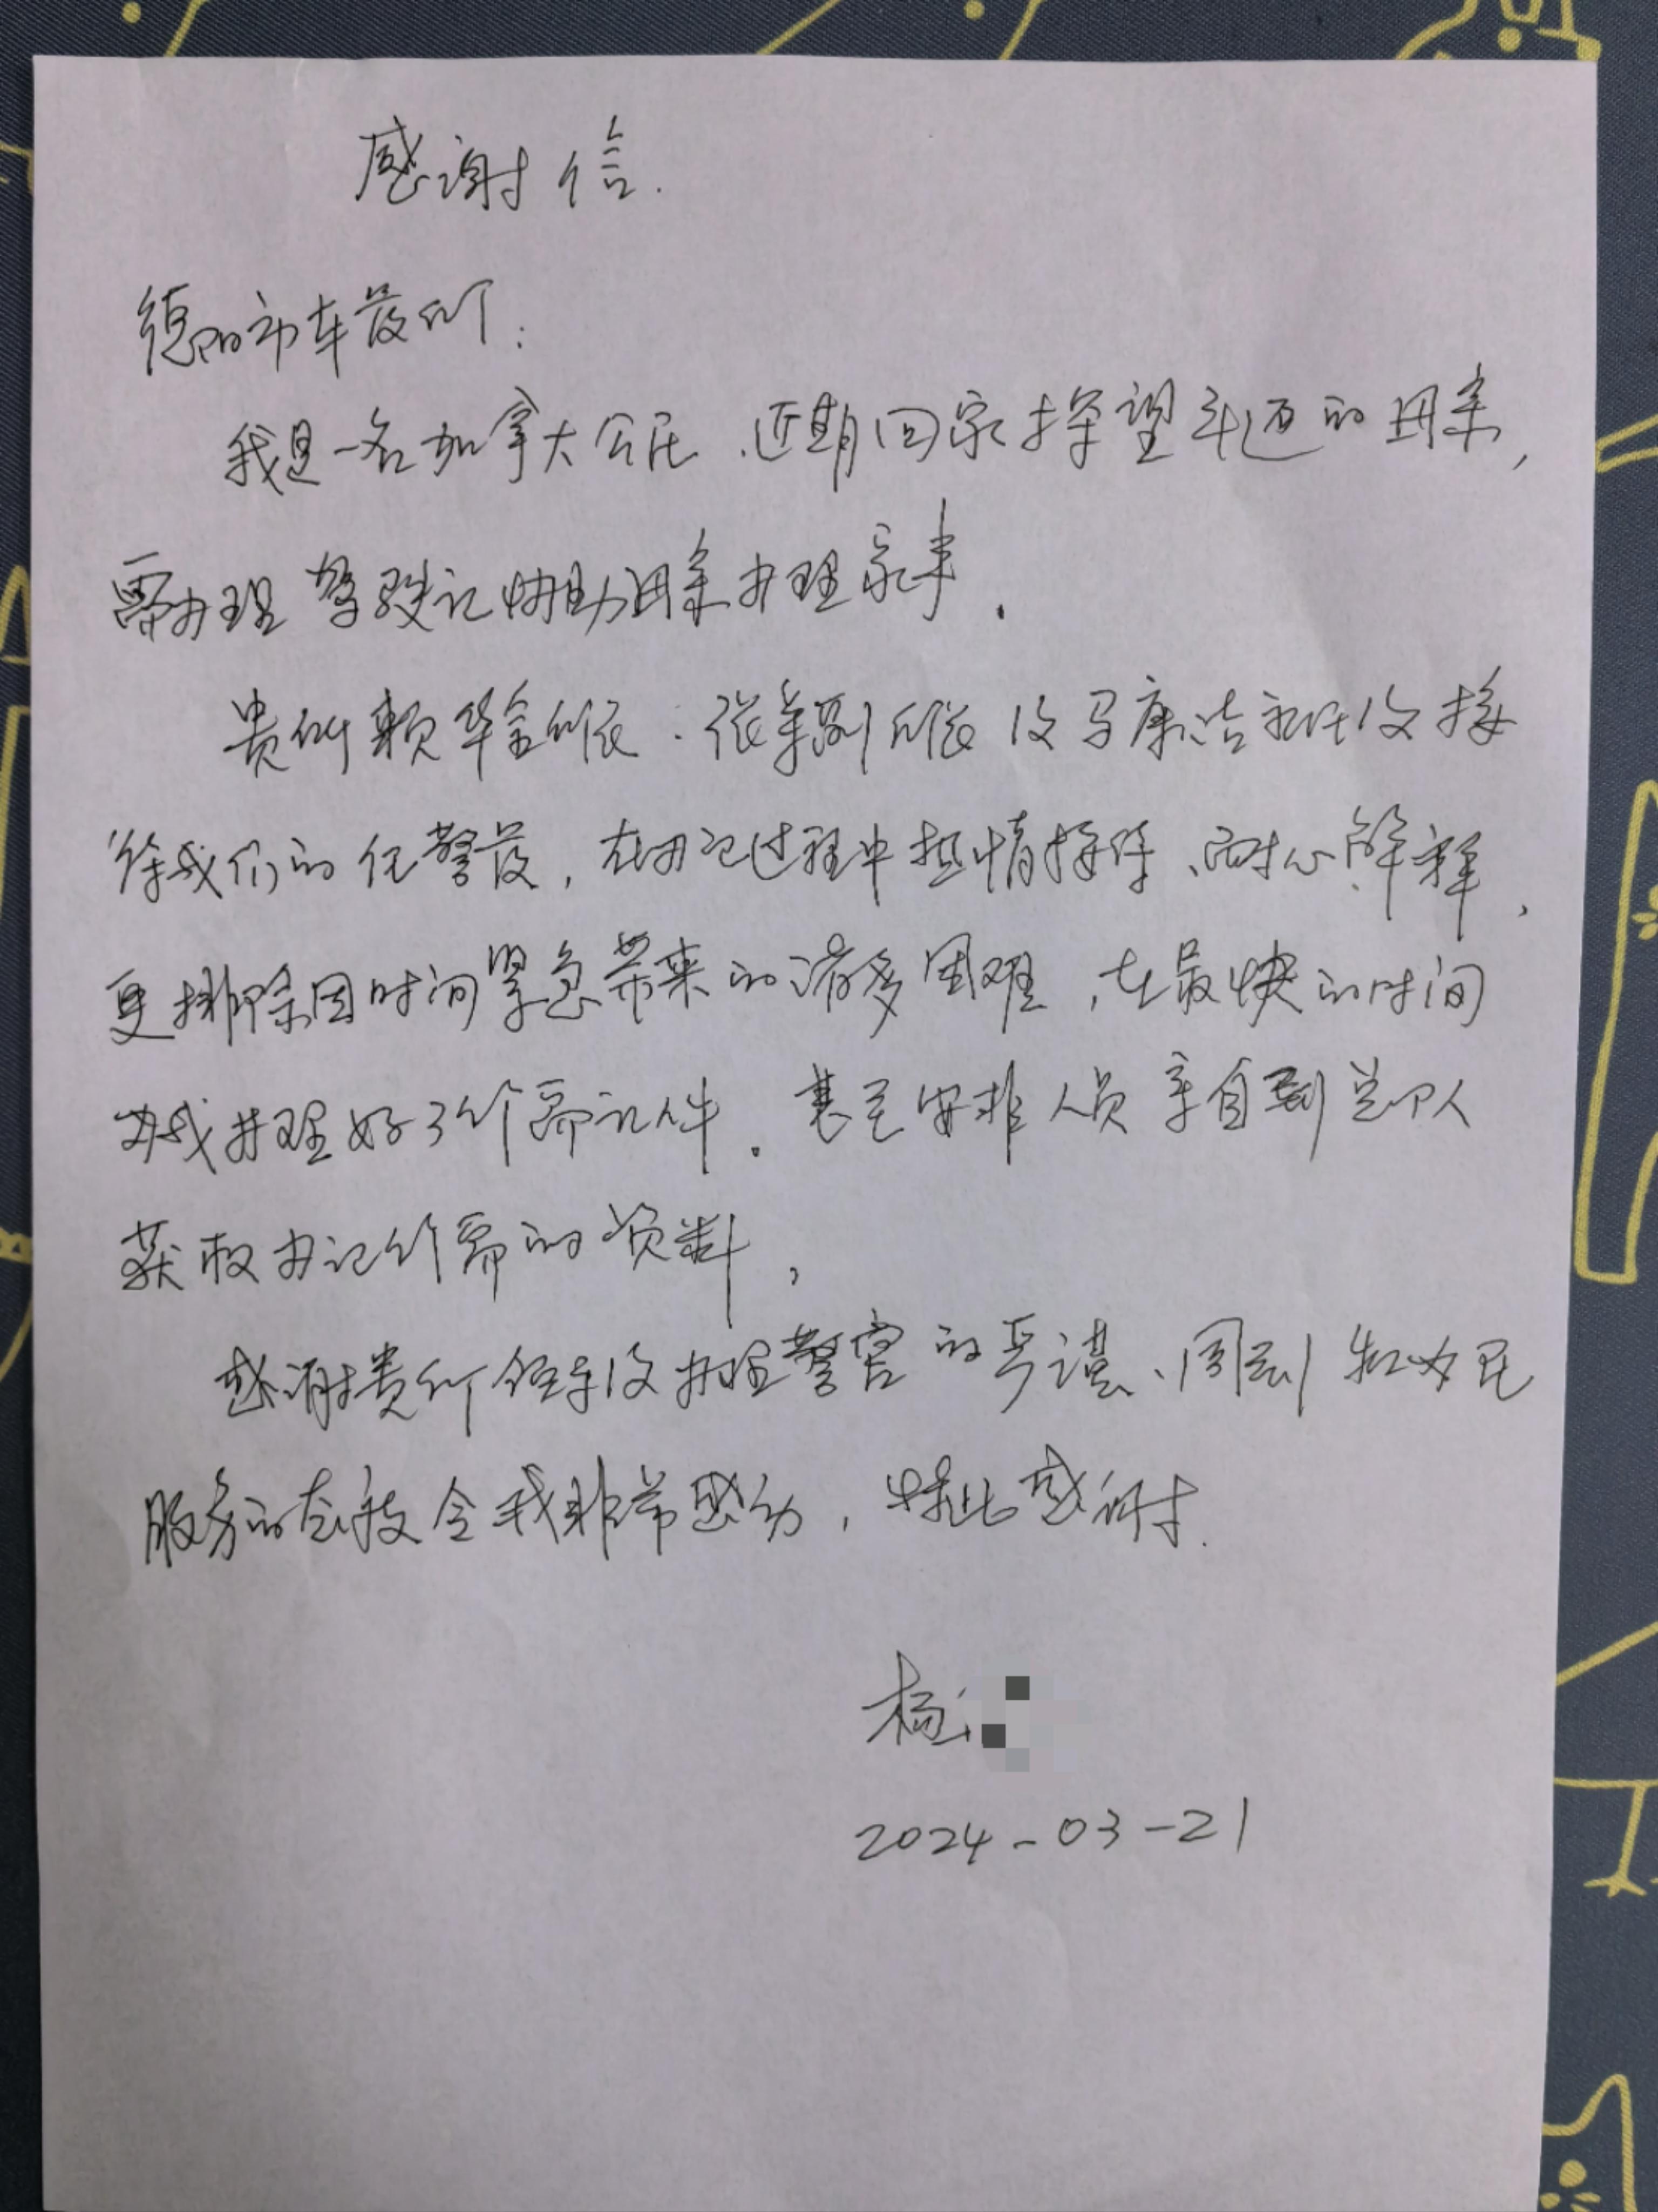 感谢信.
德阳市车管所:
我是一名加拿大公民、近期回家探望年迈的母亲,
需办理驾驶证协助母亲办理家事.
贵所赖华金所长、张 副所长及马康 主任及接
待我们的 警 , 在办证过程中热情接待、耐心解释,
更排除因时间紧急带来的诸多困难, 在最快的时间
为我办理好了所需证件. 甚至安排人员亲自到 个人
获取办证所需的资料,
感谢贵所领导及办理警官的严谨、周到和为民
服务的态度令我非常感动, 特此感谢.
杨
2024-03-21